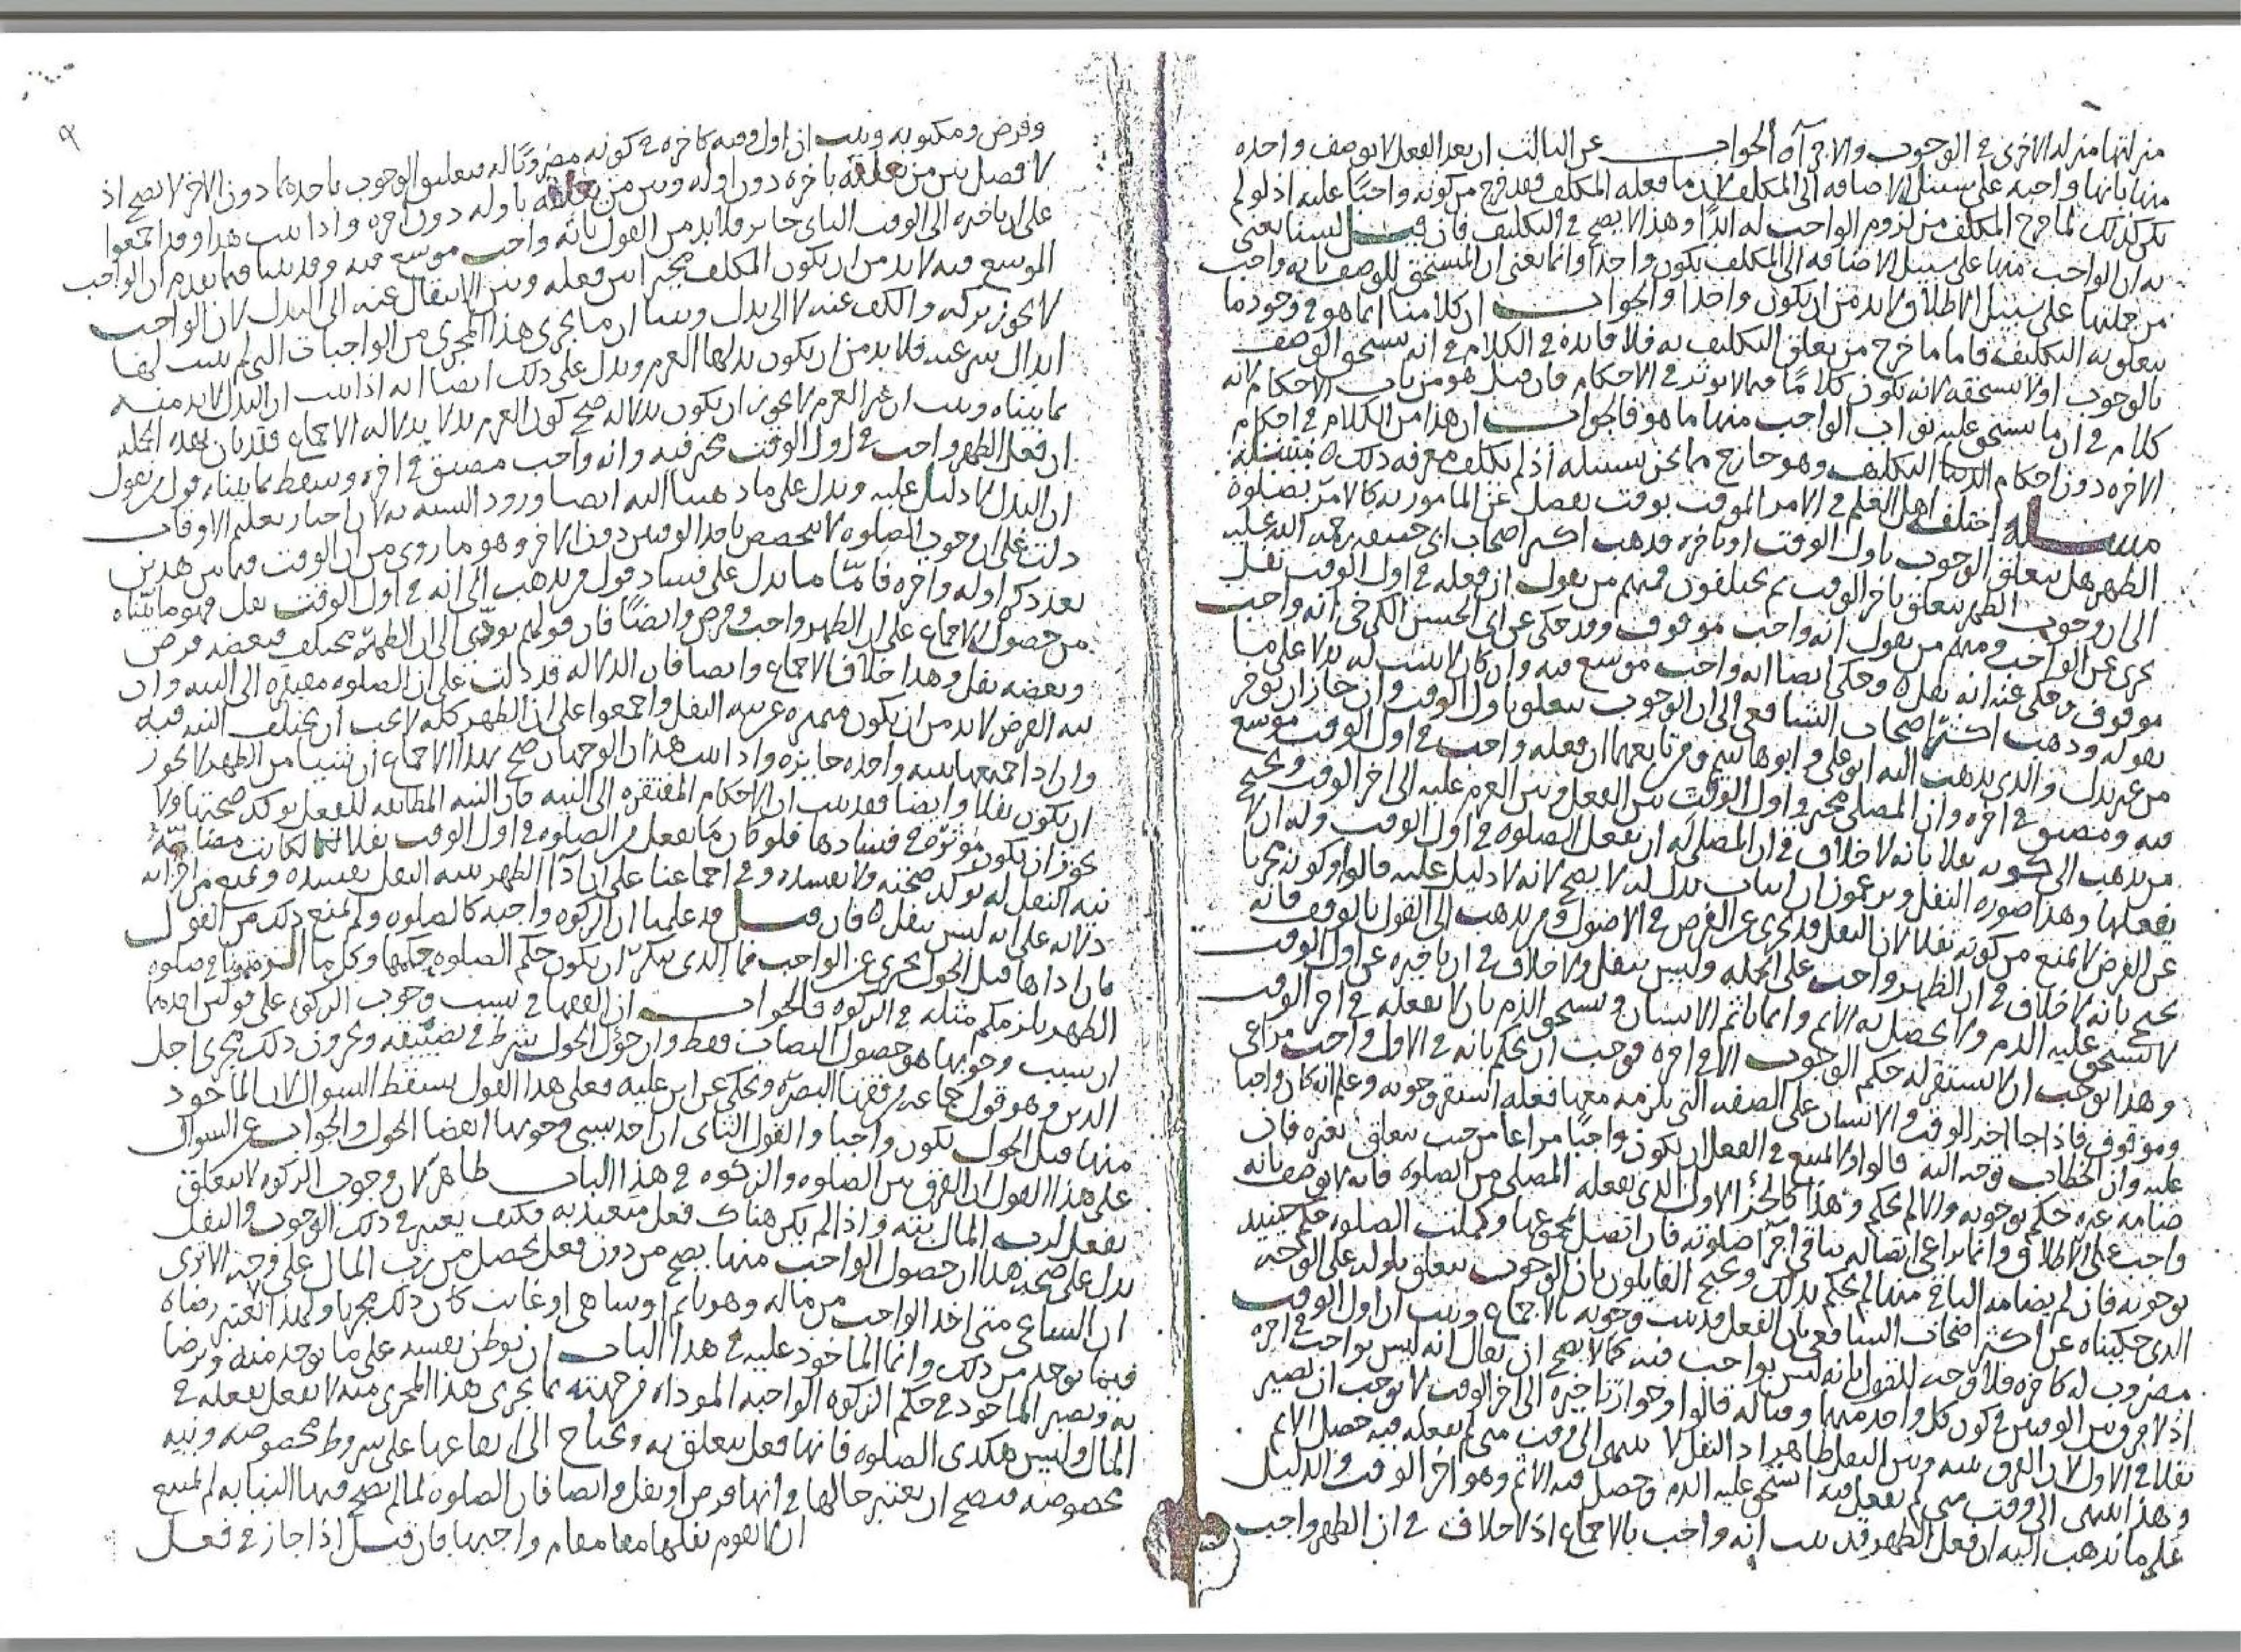 منزلتها منزله الاخرى في الوجوب والاجرآء الجواب عن الثالث ان بعد الفعل لا يوصف واحده
منها بانها واجبه على سبيل الاضافه الى المكلف لان ما فعله المكلف فقد خرج من كونه واجبًا عليه اذ لو لم
يكن كذلك لما خرج المكلف من لزوم الواجب له ابدًا وهذا لا يصح في التكليف فان قيل لسنا نعني
به ان الواجب منها على سبيل الاضافه الى المكلف يكون واحدًا وانما نعني ان المستحق للوصف بانه واجب
من جملتها على سبيل الاطلاق لا بد من ان يكون واحدا والجواب ان كلامنا انما هو في وجود ما
يتعلق به التكليف فاما ما خرج من تعلق التكليف به فلا فايده في الكلام في انه يستحق الوصف
بالوجوب او لا يستحقه لانه يكون كلامًا فيما لا يؤثر في الاحكام فان قيل هو من باب الاحكام لانه
كلام في ان ما يستحق عليه ثواب الواجب منها ما هو فالجواب ان هذا من الكلام في احكام
الاخره دون احكام الدنيا التكليف وهو خارج مما نحن بسبيله اذ لم نكلف معرفه ذلك ٥
مسله اختلف اهل العلم في الامر الموقت بوقت يفضل عن المامور به كالامر بصلوة
الظهر هل يتعلق الوجوب باول الوقت او باخره فذهب اكثر اصحاب ابي حنيفه رحمه الله عليه
الى ان وجوب الظهر يتعلق باخر الوقت ثم يختلفون فمنهم من يقول ان فعله في اول الوقت نفل
يجزى عن الواجب ومنهم من يقول انه واجب موقوف وقد حكى عن ابي الحسن الكرخي انه واجب
موقوف وحكى عنه انه نفل ٥ وحكى ايضا انه واجب موسع فيه وان كان لا يثبت له بدلا على ما
يقوله وذهب اكثر اصحاب الشافعي الى ان الوجوب يتعلق باول الوقت وان جاز ان يؤخر
من غير بدل والذى يذهب اليه ابو على وابو هاشم ومن تابعهما ان فعله واجب في اول الوقت موسع
فيه ومضيق في اخره وان المصلى مخير في اول الوقت بين الفعل وبين العزم عليه الى اخر الوقت ويحتج
من يذهب الى كونه نفلا بانه لا خلاف في ان المصلى له ان يفعل الصلوه في اول الوقت وله ان لا
يفعلها وهذا صوره النفل ويزعمون ان اثبات بدل له لا يصح لانه لا دليل عليه قالوا وكونه مجزيا
عن الفرض لا يمنع من كونه نفلا لان النفل قد يجزى عن الفرض في الاصول ومن يذهب الى القول بالوقف فانه
يحتج بانه لا خلاف في ان الظهر واجب على الجمله وليس بنفل ولا خلاف في ان تاخيره عن اول الوقت
لا يستحق عليه الذم ولا يحصل به الاثم وانما ياثم الانسان ويستحق الذم بان لا يفعله في اخر الوقت
وهذا يوجب ان لا يستقر له حكم الوجوب الا في اخره فوجب ان يحكم بانه في الاول واجب مراعى
وموقوف فاذا جا اخر الوقت والانسان على الصفه التي يلزمه معها فعله استقر وجوبه وعلم انه كان واجبا
عليه وان الخطاب توجه اليه قالوا ولا يمتنع في الفعل ان يكون واجبًا مراعا من حيث يتعلق بغيره فان
ضامه غيره حكم بوجوبه والا لم يحكم وهذا كالجزء الاول الذى يفعله المصلى من الصلوه فانه لا يوصف بانه
واجب على الاطلاق وانما يراعى اتصاله بباقي اجزآ صلوته فان اتصل بجميعها وكملت الصلوه حكم حينئذ
بوجوبه فان لم يضامه الباقي منها لم يحكم بذلك ويحتج القايلون بان الوجوب يتعلق باوله على الوجه
الذى حكيناه عن اكثر اصحاب الشافعي بان الفعل قد ثبت وجوبه بالاجماع وثبت ان اول الوقت
مضروب له كاخره فلا وجه للقول بانه ليس بواجب فيه كما لا يصح ان يقال انه ليس بواجب في اخره
اذ لا فرق بين الوقتين في كون كل واحد منهما وقتا له قالوا وجواز تاخيره الى اخر الوقت لا يوجب ان يصير
نفلا في الاول لان الفرق بينه وبين النفل ظاهر اذ النفل لا ينتهى الى وقت متى لم يفعله فيه حصل الاثم
وهذا ينتهى الى وقت متى لم يفعل فيه استحق عليه الذم وحصل فيه الاثم وهو اخر الوقت والدليل
على ما نذهب اليه ان فعل الظهر قد ثبت انه واجب بالاجماع اذ لا خلاف في ان الظهر واجب
٩
وفرض ومكتوبه وثبت ان اول وقته كاخره في كونه مضروبًا له فتعليق الوجوب باحدهما دون الاخر لا يصح اذ
لا فصل بين من يعلقه باخره دون اوله وبين من يعلقه باوله دون اخره واذا ثبت هذا وقد اجمعوا
على ان تاخيره الى الوقت الثاني جايز فلا بد من القول بانه واجب موسع فيه وقد بينا فيما تقدم ان الواجب
الموسع فيه لا بد من ان يكون المكلف مخيرا بين فعله وبين الانتقال عنه الى البدل لان الواجب
لا يجوز تركه والكف عنه لا الى بدل وبينا ان ما يجرى هذا المجرى من الواجبات التي لم يثبت لها
ابدال شرعيه فلا بد من ان يكون بدلها العزم ويدل على ذلك ايضا انه اذا ثبت ان البدل لا بد منه
بما بيناه وثبت ان غير العزم لا يجوز ان يكون بدلا له صح كون العزم بدلا بدلاله الاجماع فقد بان بهذه الجمله
ان فعل الظهر واجب في اول الوقت مخير فيه وانه واجب مضيق في اخره وسقط بما بيناه قول من يقول
ان البدل لا دليل عليه ويدل على ما ذهبنا اليه ايضا ورود السنه به لان اخبار تعليم الاوقات
دلت على ان وجوب الصلوه لا يتخصص باحد الوقتين دون الاخر وهو ما روى من ان الوقت فيما بين هذين
بعد ذكر اوله واخره فامّا ما يدل على فساد قول من يذهب الى انه في اول الوقت نفل فهو ما بيّناه
من حصول الاجماع على ان الظهر واجب وفرض وايضًا فان قولهم يؤدّى الى ان الظهر يختلف فبعضه فرض
وبعضه نفل وهذا خلاف الاجماع وايضا فان الدلاله قد دلت على ان الصلوه مفتقره الى النيه وان
نيه الفرض لا بد من ان تكون متميزه عن نيه النفل واجمعوا على ان الظهر كله لا يجب ان يختلف النيه فيه
وان اداجميعها بنيه واحده جايزه واذا ثبت هذان الوجهان صح بهذا الاجماع ان شيئا من الظهر لا يجوز
ان يكون نفلا وايضا فقد ثبت ان الاحكام المفتقره الى النيه فان النيه المطابقه للفعل تؤكد صحتها ولا
يجوز ان يكون مؤثرة في فسادها فلو كان ما يفعل من الصلوه في اول الوقت نفلا لكانت مضامّه
نيه النفل له تؤكد صحته ولا تفسده وفي اجماعنا على ان ادآ الظهر بنيه النفل يفسده ويمنع من اجزائه
دلاله على انه ليس بنفل ٥ فان قيل قد علمنا ان الزكوه واجبه كالصلوه ولم يمنع ذلك من القول
بان اداها قبل الحول يجزى عن الواجب فما الذى ينكر ان يكون حكم الصلوه حكمها وكل ما في صلوه
الظهر يلزمكم مثله في الزكوه فالجواب ان الفقها في سبب وجوب الزكوه على قولين احدهما
ان سبب وجوبها هو حصول النصاب فقط وان حؤل الحول شرط في تضييقه ويجرون ذلك مجرى اجل
الدين وهو قول جماعه من فقها البصره ويحكى عن ابن عليه فعلى هذا القول يسقط السوال لان الماخوذ
منها قبل الحول يكون واجبا والقول الثاني ان احد سببى وجوبها انقضا الحول والجواب عن السوال
على هذا القول ان الفرق بين الصلوه والزكوه في هذا الباب ظاهر لان وجوب الزكوه لا يتعلق
بفعل لرب المال بتّه واذا لم يكن هناك فعل متعبد به فكيف يعتبر في ذلك الوجوب والنفل
يدل على صحه هذا ان حصول الواجب منها يصح من دون فعل يحصل من رب المال على وجه الا ترى
ان الساعى متى اخذ الواجب من ماله وهو نايم او ساهى او غايب كان ذلك مجزيا ولهذا رضاه
فيما يوخذ من ذلك وانما الماخوذ عليه في هذا الباب ان يوطن نفسه على ما يوخذ منه ويرضا
به ويصير الماخوذ في حكم الزكوه الواجبه الموداه من جهته بما يجرى هذا المجرى منه لا بفعل يفعله في
المال وليس هكذى الصلوه فانها فعل يتعلق به ويحتاج الى ايقاعها على شروط مخصوصه ونيه
مخصوصه فيصح ان يعتبر حالها في انها فرض او نفل وايضا فان الصلوه لما لم تصح فيها النيابه لم يمتنع
ان لا يقوم نفلها معا مقام واجبها فان قيل اذا جاز في فعل